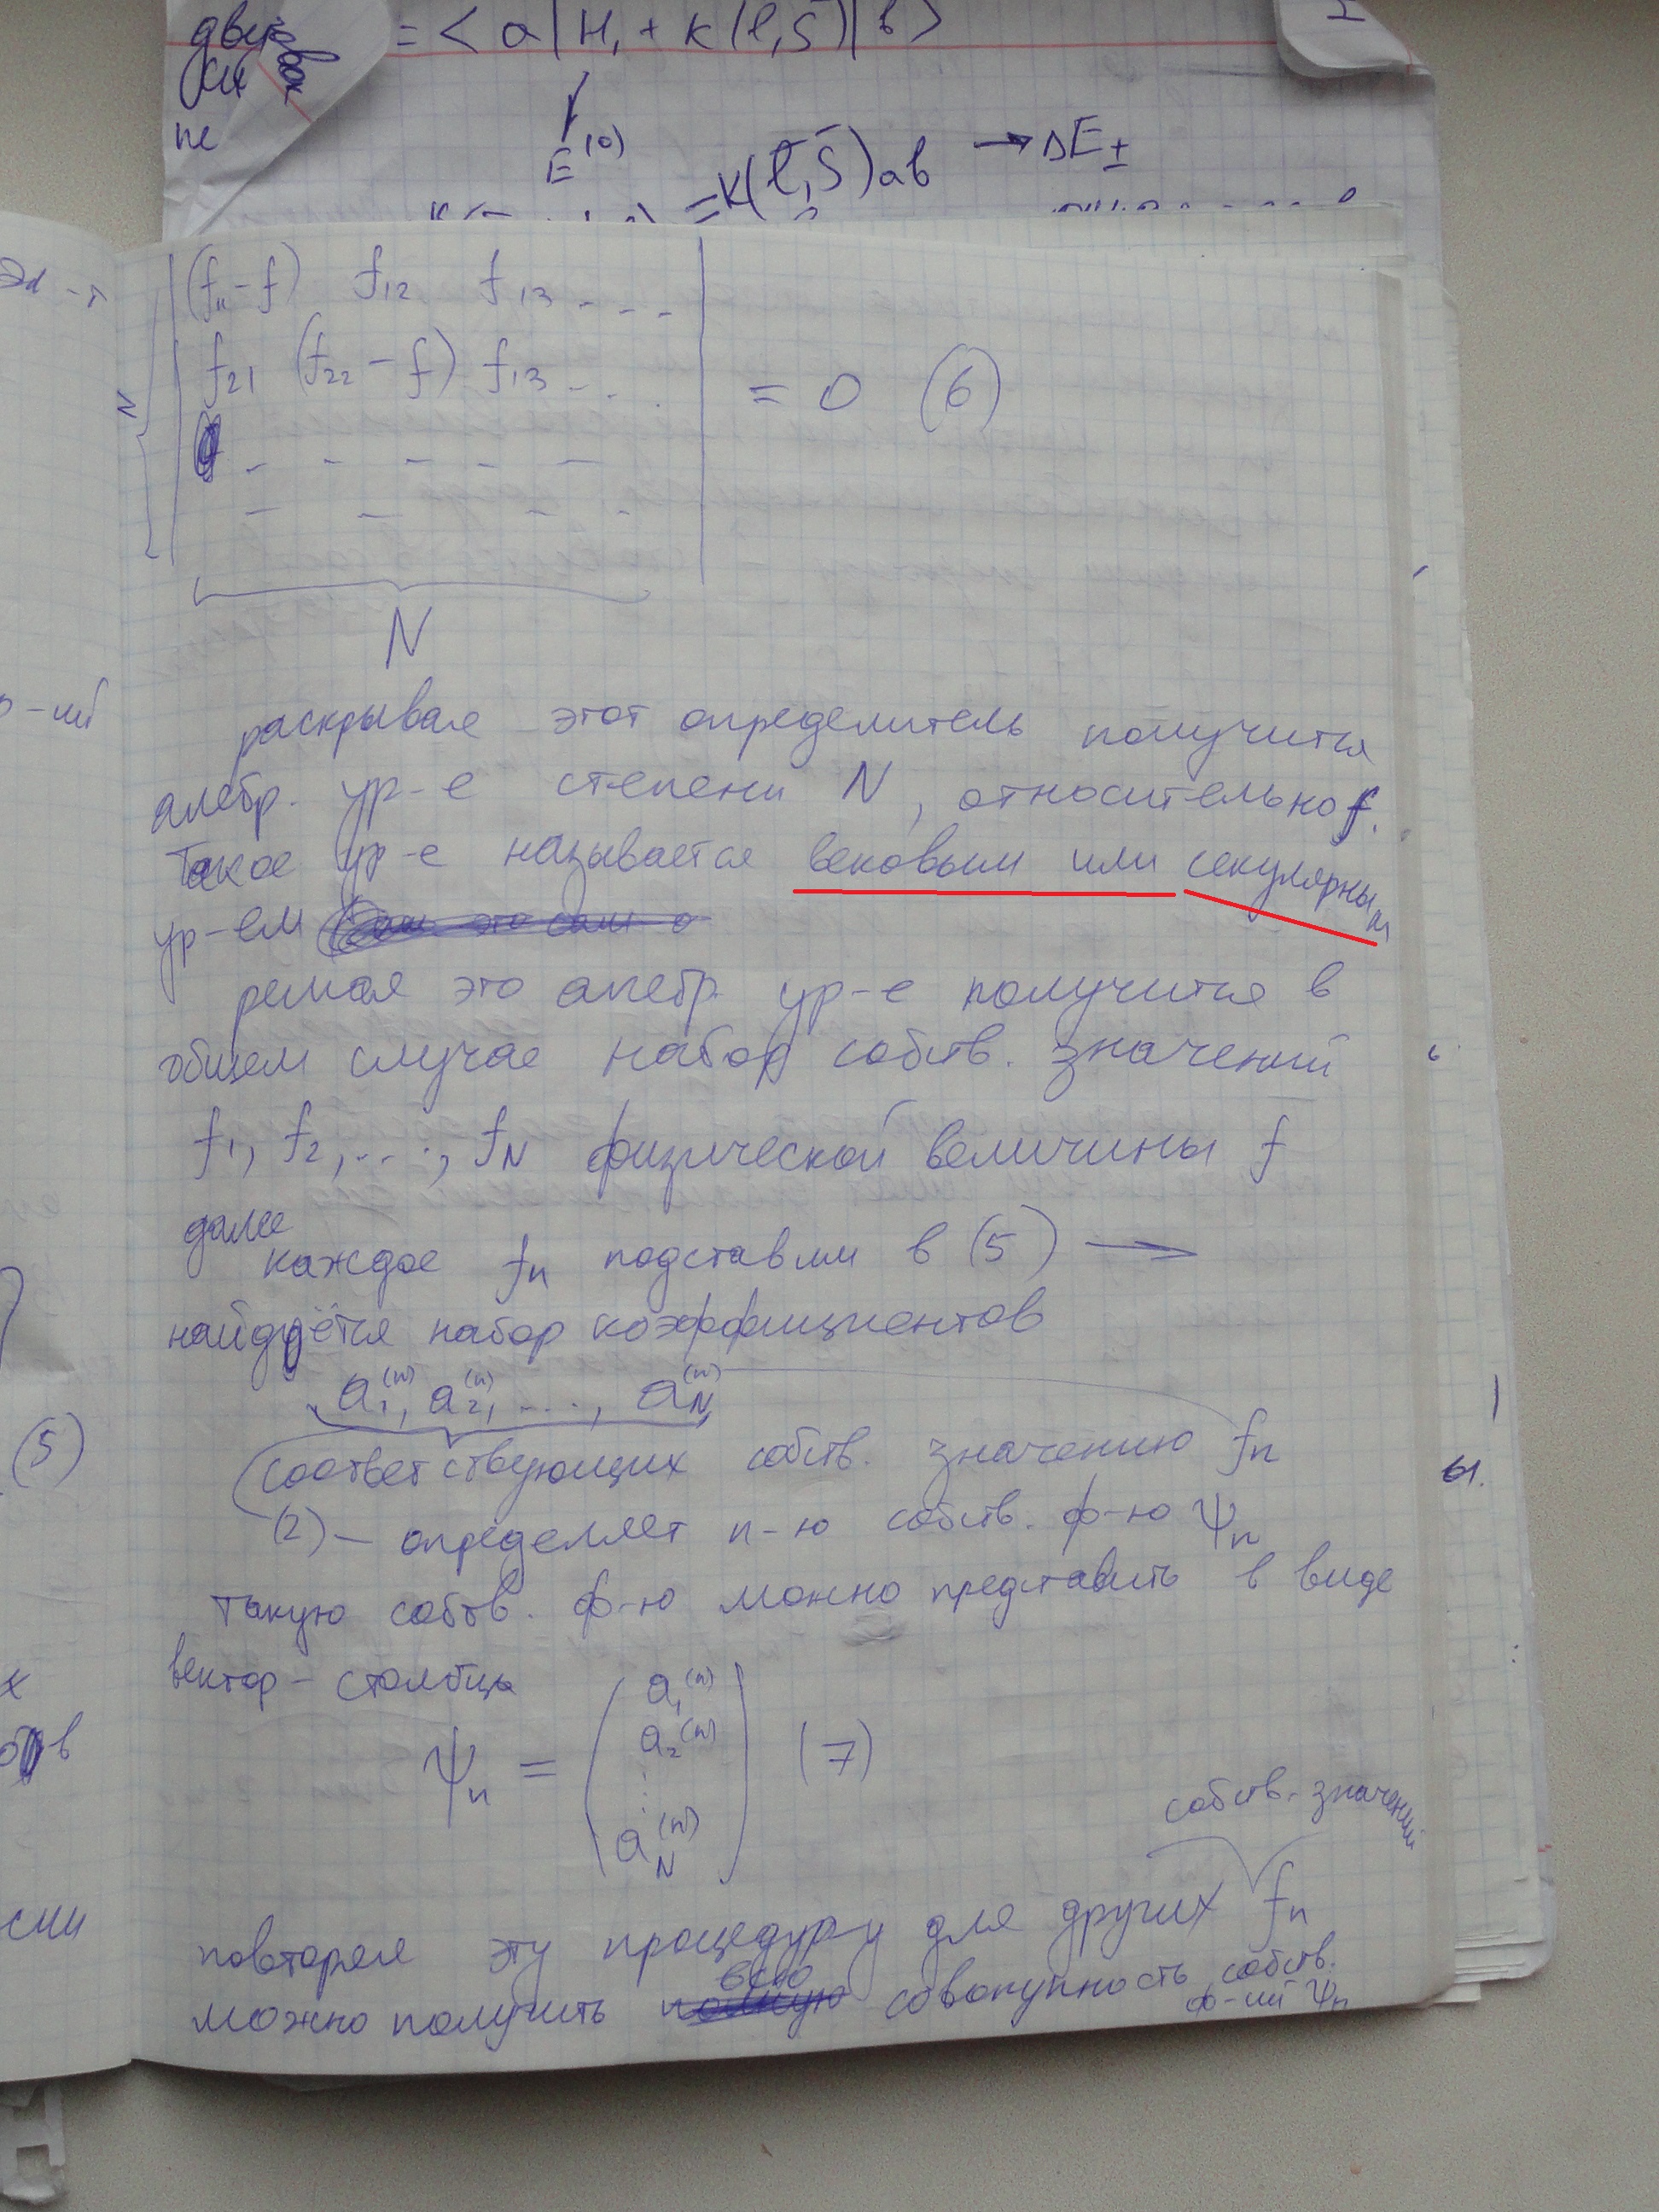 = < a | H₁ + K(l,S) | b >
не
E⁽⁰⁾
= K(l,S)ab → ΔE±
(f₁₁-f) f₁₂ f₁₃ - - -
N f₂₁ (f₂₂-f) f₁₃ - . .
= 0 (6)
- - - - -
- - - -
N
раскрывая этот определитель получится
алебр. ур-е степени N, относительно f.
Такое ур-е называется вековым или секулярным
ур-ем
решая это алебр. ур-е получится в
общем случае набор собств. значений
f₁, f₂, ..., f_N физической величины f
далее
каждое fₙ подставим в (5) →
найдётся набор коэффициентов
a₁⁽ⁿ⁾, a₂⁽ⁿ⁾, ..., a_N⁽ⁿ⁾
соответствующих собств. значению fₙ
(5)
(2) – определяет n-ю собств. ф-ю ψₙ
такую собств. ф-ю можно представить в виде
вектор-столбца
a₁⁽ⁿ⁾
a₂⁽ⁿ⁾
ψₙ = (7)
⋮
a_N⁽ⁿ⁾
собств. значений
повторяя эту процедуру для других fₙ
всю
можно получить совокупность собств.
ф-ий ψₙ